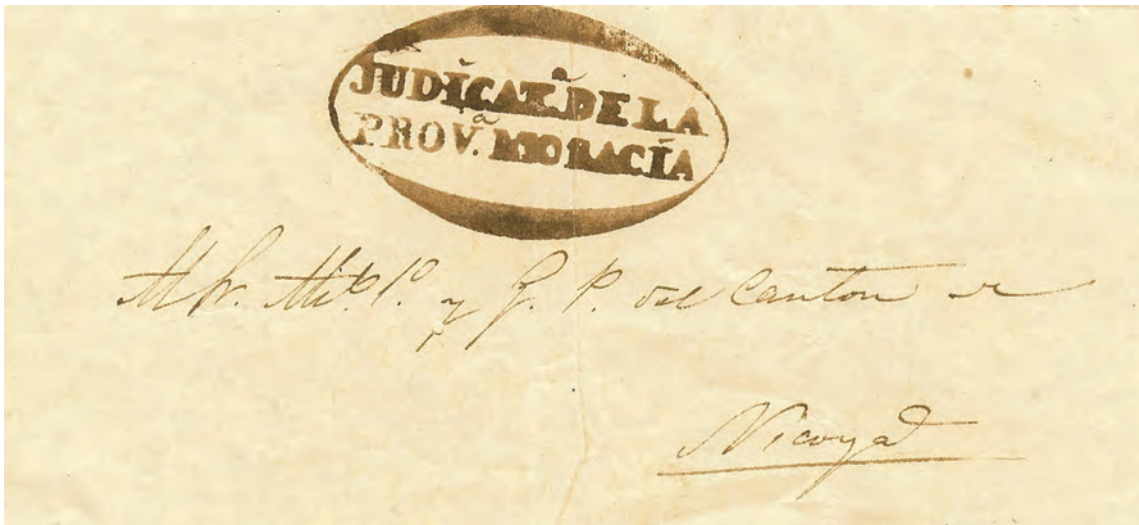 JUDICAT.ª DE LA
PROV.ª MORACÍA
y J. P. del Canton de
Nicoya